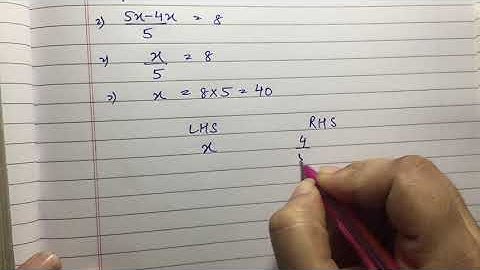 ⇒) (5x-4x)/5 = 8
⇒) x/5 = 8
⇒) x = 8×5 = 40
LHS RHS
x 4